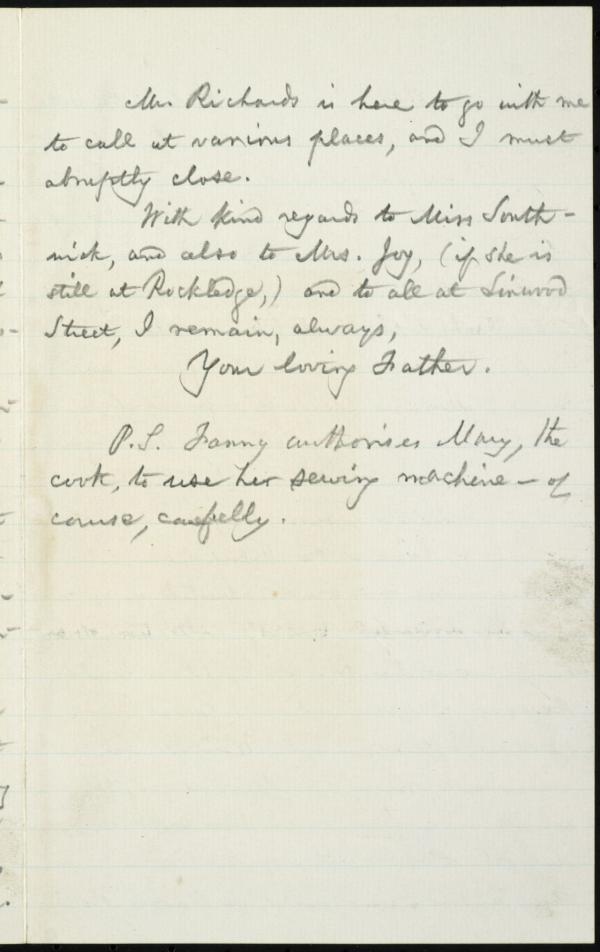 Mr. Richards is here to go with me
to call at various places, and I must
abruptly close.
With kind regards to Miss South-
wick, and also to Mrs. Joy, (if she is
still at Rockledge,) and to all at Linwood
Street, I remain, always,
Your loving Father.
P.S. Fanny authorises Mary, the
cook, to use her sewing machine — of
course, carefully.